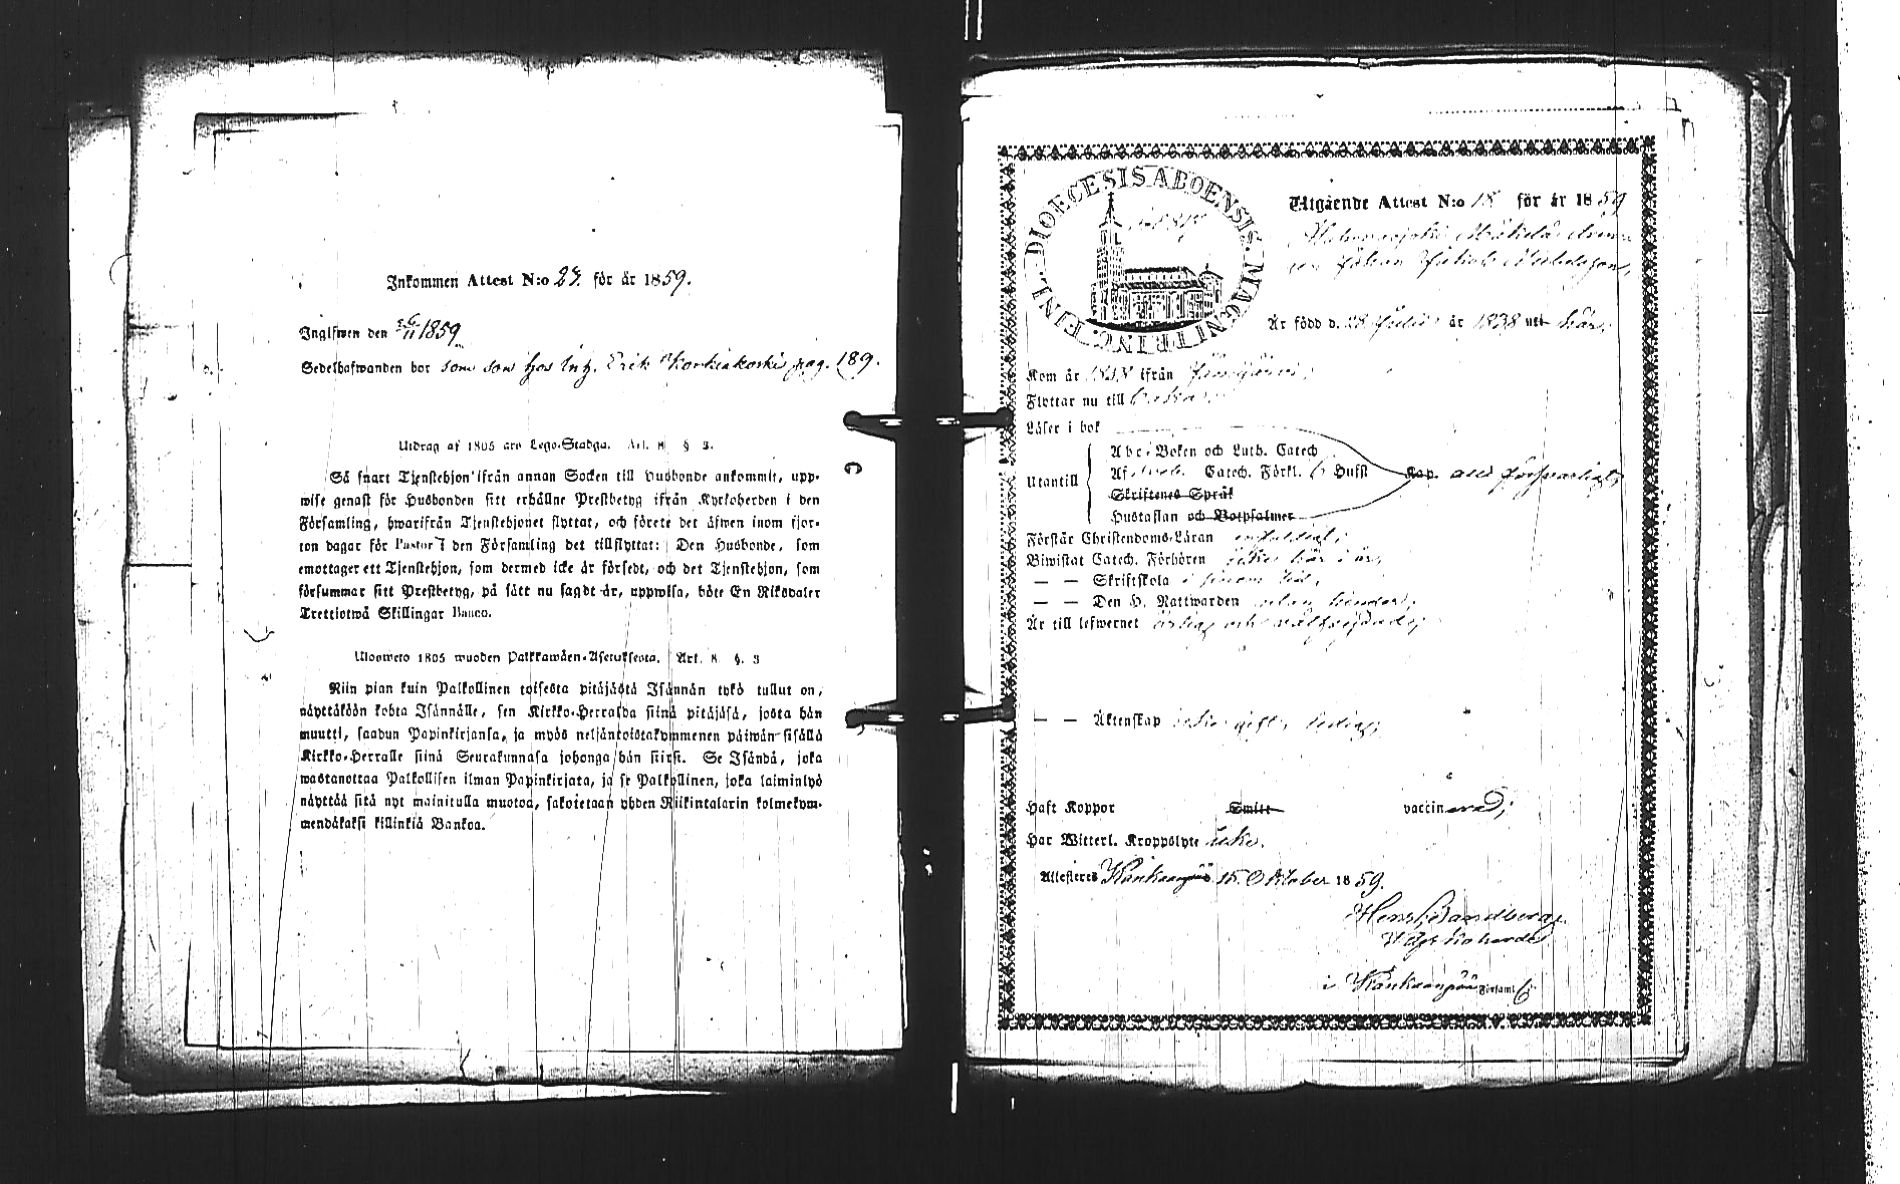 Inkommen Attest N:o 27. för år 1859.
Inglfwen den 6/11 1859
Sedelhafwanden bor som son hos Inh. Erik Korkiakoski pag. 189.
Utdrag af 1805 års Lego-Stadga. Art. 8 § 3.
Så snart Tjenstehjon ifrån annan Socken till Husbonde ankommit, upp-
wise genast för Husbonden sitt erhållne Prestbetyg ifrån Kyrkoherden i den
Församling, hwarifrån Tjenstehjonet flyttat, och förete det äfwen inom fjor-
ton dagar för Pastor i den Församling det tillflyttat: Den Husbonde, som
emottager ett Tjenstehjon, som dermed icke är försedt, och det Tjenstehjon, som
försummar sitt Prestbetyg, på sätt nu sagdt är, uppwisa, böte En Riksdaler
Trettiotwå Skillingar Banco.
Ulosweto 1805 wuoden Palkkawäen-Asetuksesta. Art. 8 §. 3
Niin pian kuin Palkollinen toisesta pitäjästä Isännän tykö tullut on,
näyttäköön kohta Isännälle, sen Kirkko-Herralda siinä pitäjäsä, josta hän
muutti, saadun Papinkirjansa, ja myös neljäntoistakymmenen päiwän sisällä
Kirkko-Herralle siinä Seurakunnasa johonga hän siirsi. Se Isändä, joka
wastanottaa Palkollisen ilman Papinkirjata, ja se Palkollinen, joka laiminlyö
näyttää sitä nyt mainitulla muotoa, sakoitetaan yhden Riikintalarin kolmekym-
mendäkaksi killinkiä Bankoa.
DIOECESIS ABOENSIS. MAGNI PRINC. FINL.
Utgående Attest N:o 18 för år 1859
Johan
Är född d. 28 Julii år 1838 uti här;
Kom år ifrån
Flyttar nu till
Läser i bok
Utantill
Abc-Boken och Luth. Catech
Af Catech. Förkl. 6 Hufst Kap. allt försvarligt;
Skriftenes Språk
Hustaflan och Botpsalmer
Förstår Christendoms-Läran enfaldigt;
Biwistat Catech. Förhören här i år;
— — Skriftskola i sinom tid,
— — Den H. Nattwarden
Är till lefwernet ärlig och
— — Äktenskap icke gift, ledig;
Haft Koppor Smitt vaccinerad;
Har Witterl. Kroppslyte icke.
Attesteres Kankaanpää 15. Oktober 1859.
Henr. Sandberg
i Kankaanpää Församl.